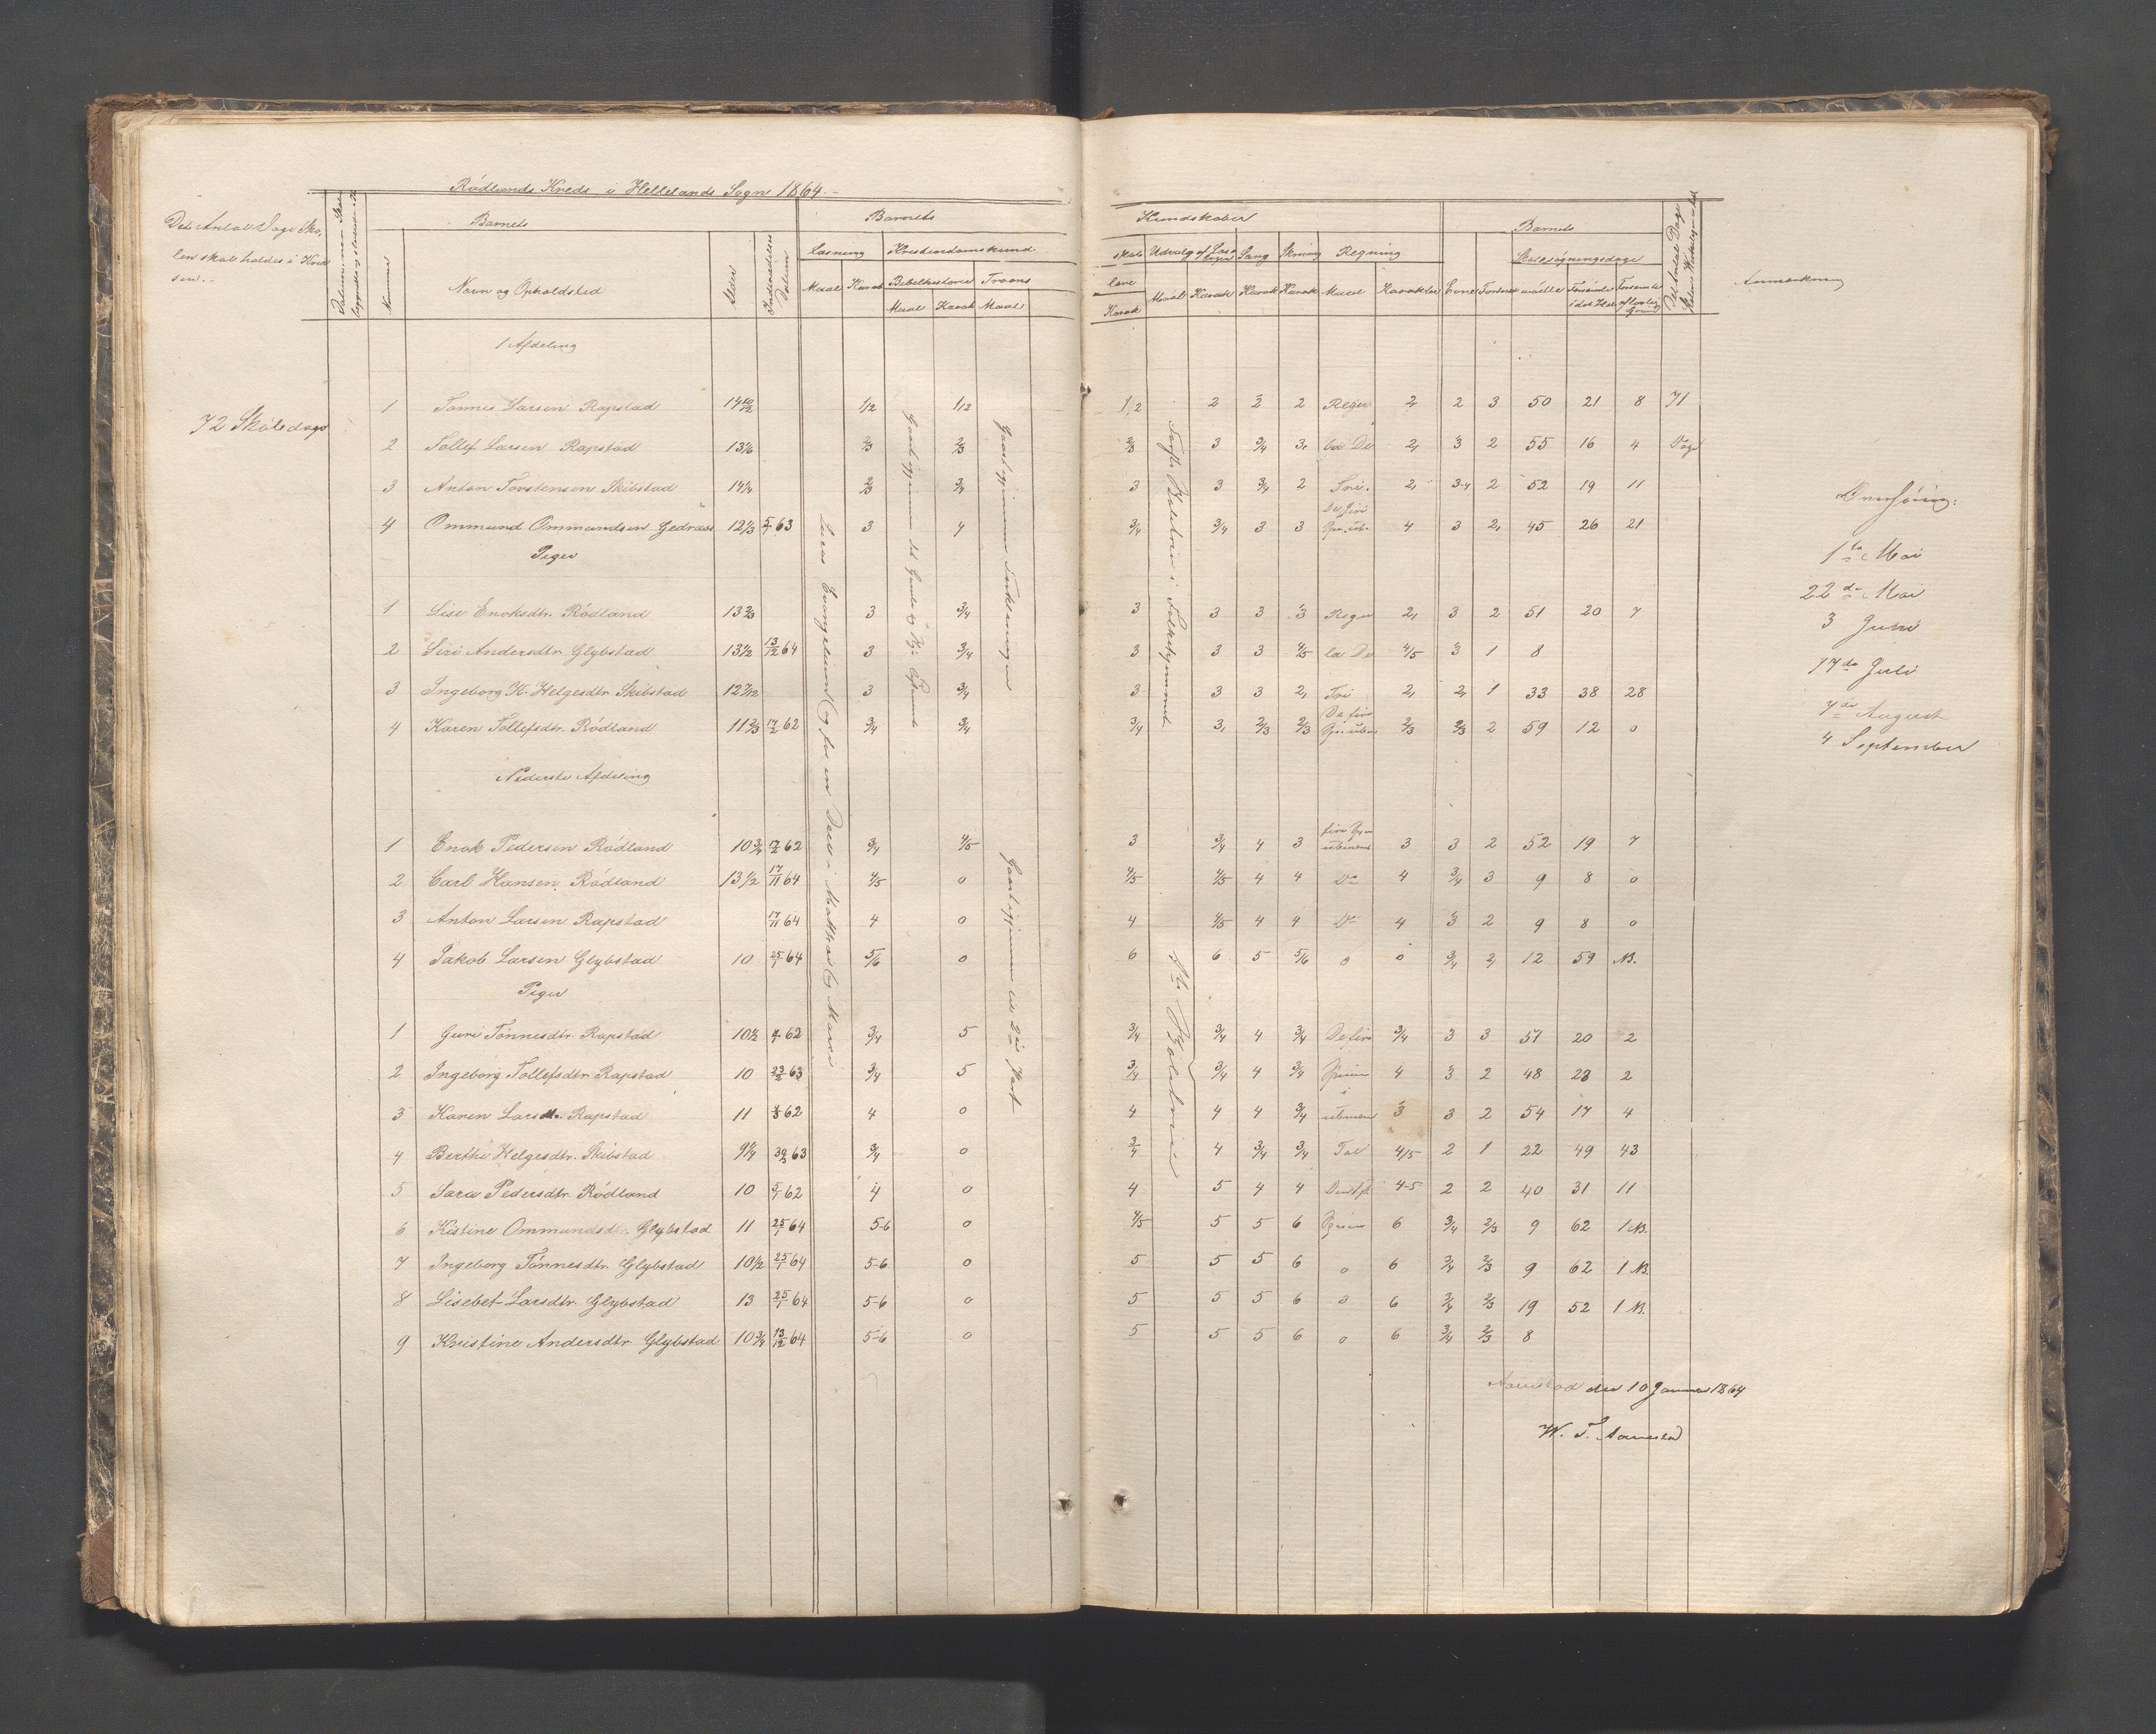 Rödlands Kreds i Hellelands Sogn 1864.
Det Antal Dage Sko-
len skal holdes i Kred-
sen.
Nummer
Barnets
Navn og Opholdsted
Alder
Indtrædelses Datum
Barnets
Læsning
Maal Karak
Kristendomskund
Bibelhistorie Troens
Maal Karak Maal
Kundskaber
skab Udvalg af Læsebogen Sang Skrivning Regning
lære
Karak Maal Karak Karak Karak Maal Karakter
Barnets
Evne
Skolesøgningsdage
Anmærkning
1 Afdeling
72 Skoledage
1 Tønnes Larsen Rapstad 14 10/12 1/2 1/2 1/2 2 2 2 Regu 2 2 3 50 21 8 71
2 Tollef Larsen Rapstad 13 1/6 2/3 2/3 2/3 3 3/4 3 la De 2 3 2 55 16 4 Dage
3 Anton Torstensen Skibstad 14 1/4 2/3 3/4 3 3 3/4 2 Tri. 2 3-4 2 52 19 11
4 Ommund Ommundsen Gedraas 12 1/3 5/7 63 3 4 3/4 3/4 3 3 De fire 4 3 2 45 26 21
Piger
1 Lise Enoksdtr. Rödland 13 2/3 3 3/4 3 3 3 3 Regu 2 3 2 51 20 7
2 Siri Andersdtr. Glybstad 13 1/2 13/12 64 3 3/4 3 3 3 4/5 la De 4/5 3 1 8
3 Ingeborg K. Helgesdtr. Skibstad 12 7/12 3 3/4 3 3 3 2 Tri 2 2 1 33 38 28
4 Karen Tollefsdtr. Rödland 11 2/3 17/2 62 3/4 3/4 3/4 3 2/3 2/3 De fire 2/3 2/3 2 59 12 0
Nederste Afdeling
1 Enok Pedersen Rödland 10 3/4 17/2 62 3/4 4/5 3 3/4 4 3 3 3 2 52 19 7
2 Carl Hansen Rödland 13 1/2 17/11 64 4/5 0 4/5 4/5 4 4 Do 4 3/4 3 9 8 0
3 Anton Larsen Rapstad 17/11 64 4 0 4 4/5 4 4 Do 4 3 2 9 8 0
4 Jakob Larsen Glybstad 10 25/1 64 5/6 0 6 6 5 5/6 0 0 3/4 2 12 59 NB.
Piger
1 Guri Tönnesdtr. Rapstad 10 1/2 62 3/4 5 3/4 3/4 4 3/4 De fire 3/4 3 3 51 20 2
2 Ingeborg Tollefsdtr. Rapstad 10 23/2 63 3/4 5 3/4 3/4 4 3/4 4 3 2 48 23 2
3 Karen Larsdtr. Rapstad 11 62 4 0 4 4 4 3/4 3 3 2 54 17 4
4 Berthe Helgesdtr. Skibstad 9 1/4 63 3/4 0 3/4 4 3/4 3/4 Tal 4/5 2 1 22 49 43
5 Sara Pedersdtr. Rödland 10 5/1 62 4 0 4 5 4 4 4-5 2 2 40 31 11
6 Kistine Ommundsdtr. Glybstad 11 25/1 64 5-6 0 4/5 5 5 6 6 3/4 2/3 9 62 1 NB.
7 Ingeborg Tönnesdtr. Glybstad 10 1/2 25/1 64 5-6 0 5 5 5 6 0 6 3/4 2/3 9 62 1 NB.
8 Lisebet Larsdtr. Glybstad 13 25/1 64 5-6 0 5 5 5 6 0 6 3/4 2/3 19 52 1 NB.
9 Kristine Andersdtr. Glybstad 10 3/4 13/12 64 5-6 0 5 5 5 6 0 6 3/4 2/3 8
Lucas Evangelium og for en Deel i Matthæi og Marci
Gaaet igjennem det Gamle og Nye Testamente
Gaaet igjennem Forklaringen
Gaaet igjennem til 2den Part
1ste Mai
22de Mai
3 Juni
17de Juli
7de August
4 September
den 10 Januar 1864
W. T. Aarrestad